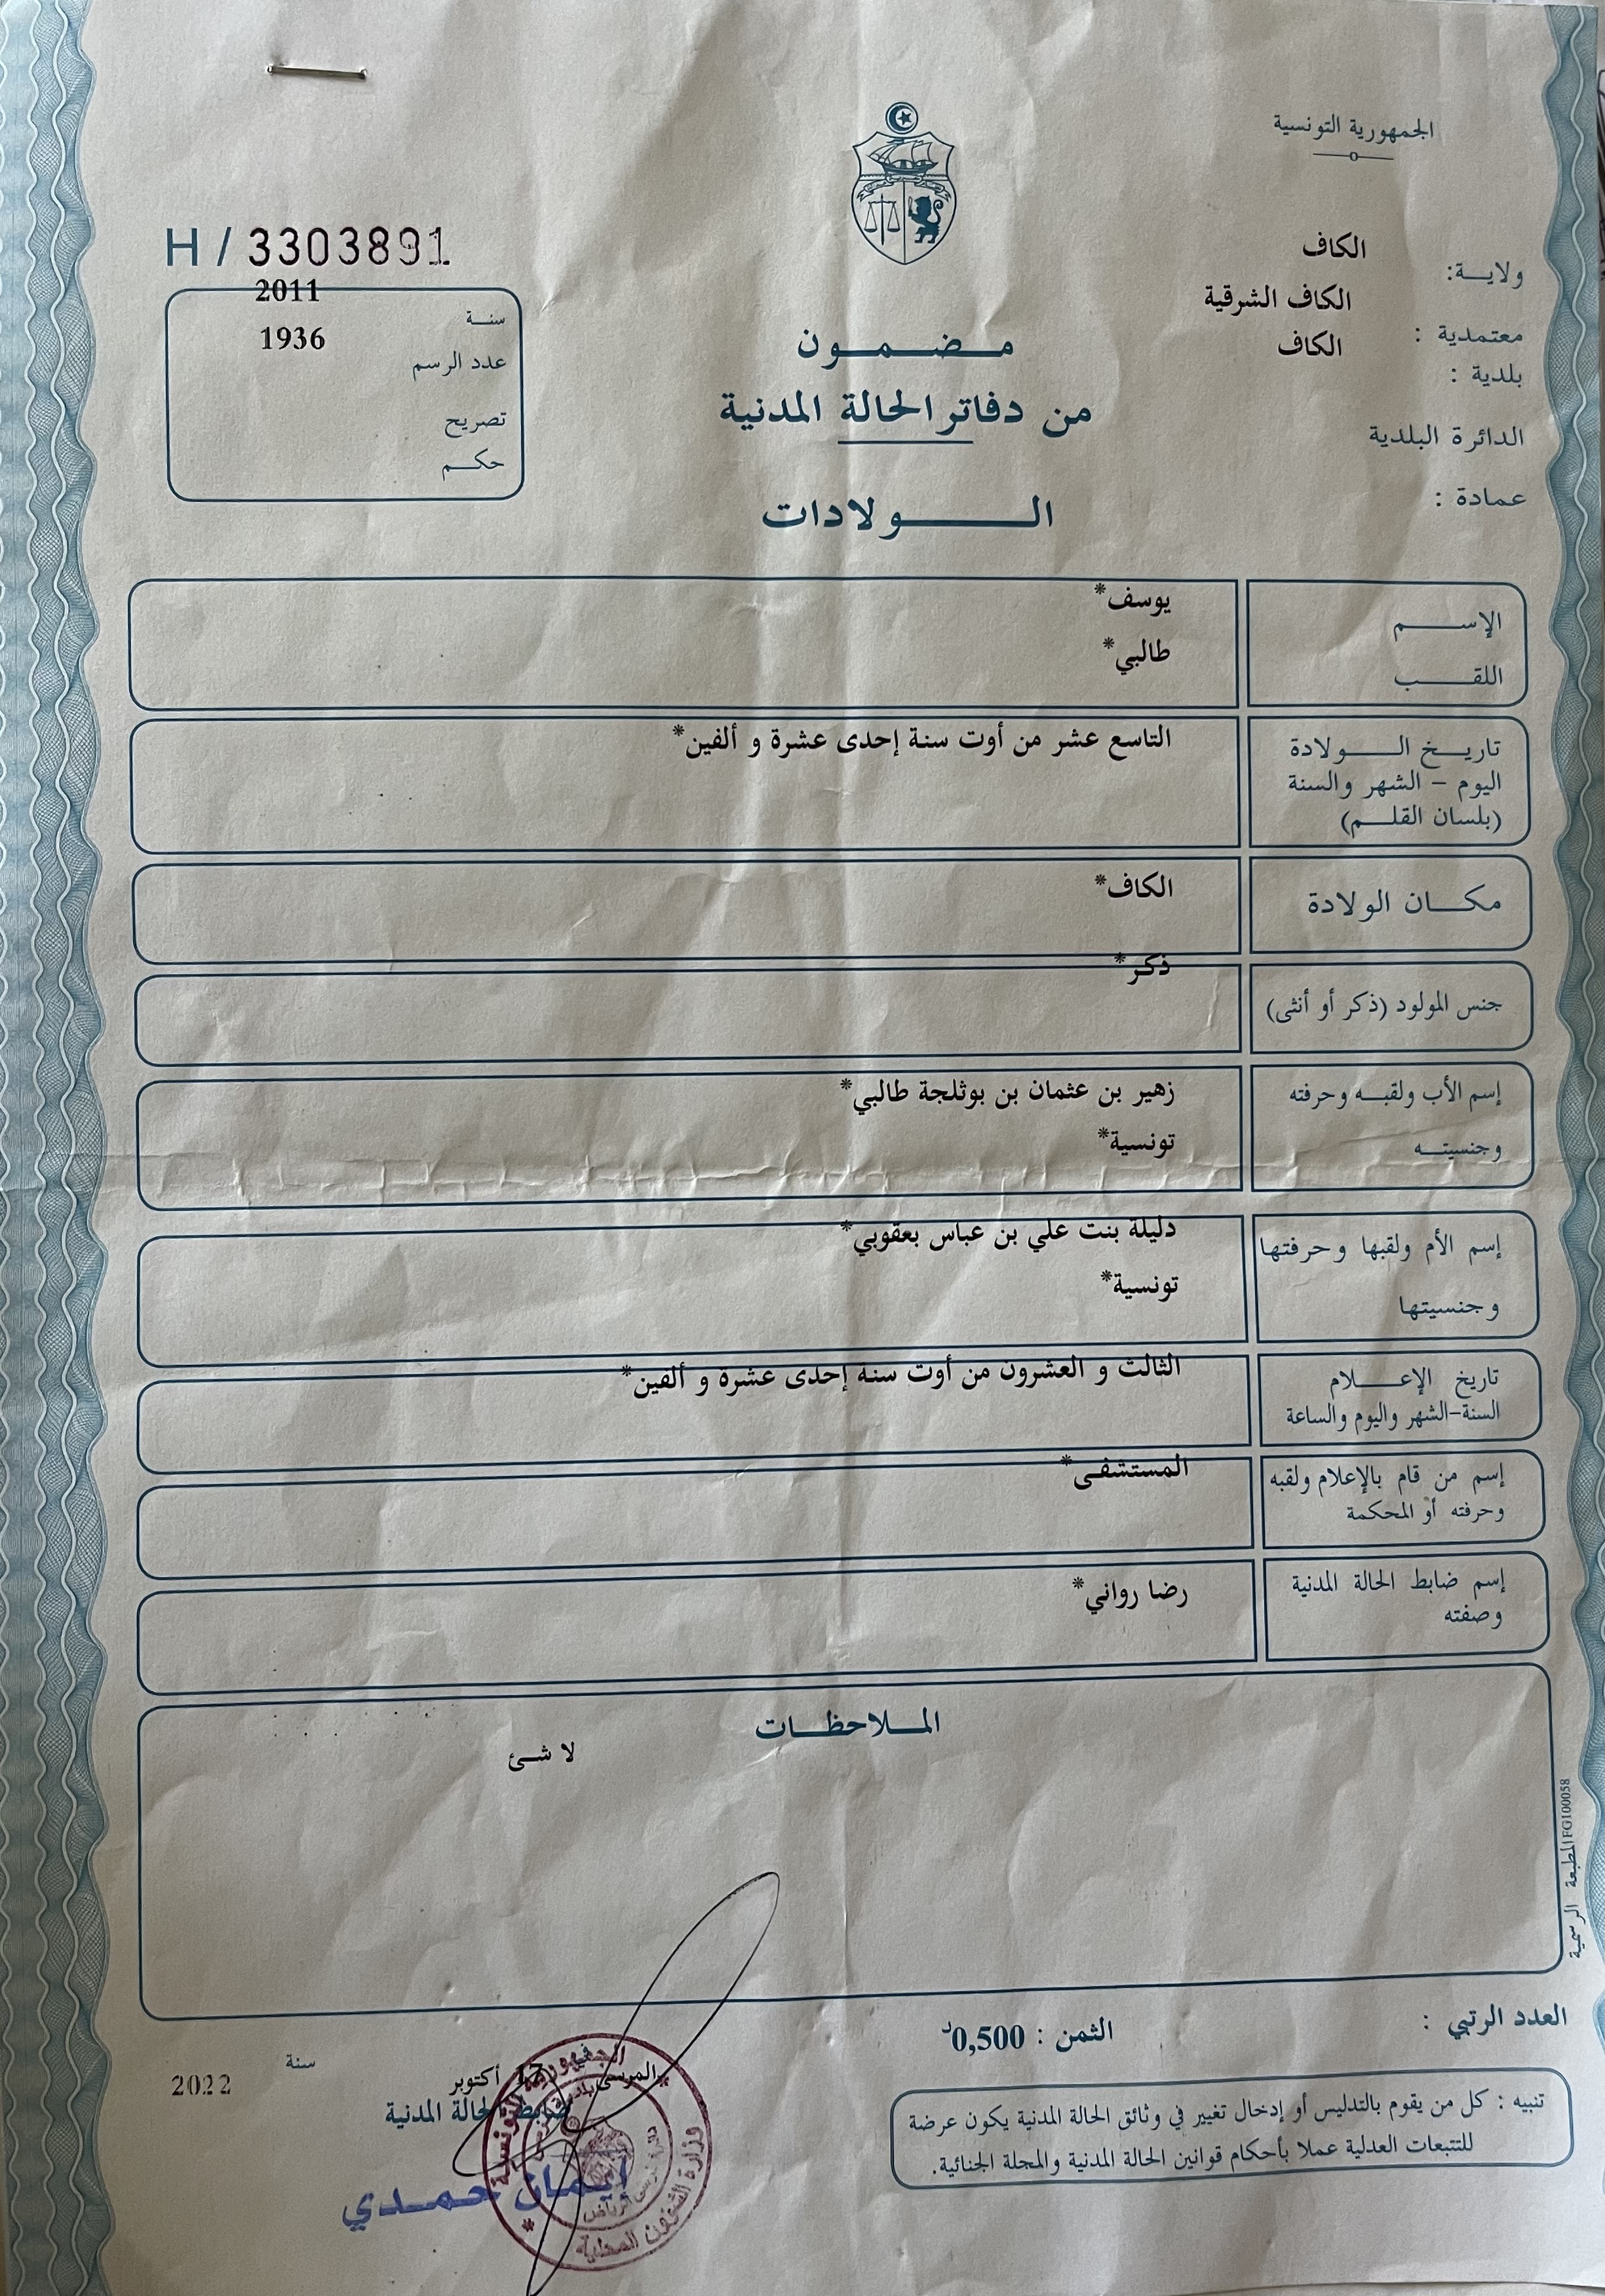 الجمهورية التونسية
ولاية: الكاف
معتمدية : الكاف الشرقية
بلدية : الكاف
الدائرة البلدية
عمادة :
مضمون
من دفاتر الحالة المدنية
الولادات
H / 3303891
سنة 2011
عدد الرسم 1936
تصريح
حكم
الإسم يوسف*
اللقب طالبي*
تاريخ الولادة
اليوم - الشهر والسنة
(بلسان القلم)
التاسع عشر من أوت سنة إحدى عشرة و ألفين*
مكان الولادة الكاف*
جنس المولود (ذكر أو أنثى) ذكر*
إسم الأب ولقبه وحرفته
وجنسيته
زهير بن عثمان بن بوثلجة طالبي*
تونسية*
إسم الأم ولقبها وحرفتها
وجنسيتها
دليلة بنت علي بن عباس يعقوبي*
تونسية*
تاريخ الإعلام
السنة-الشهر واليوم والساعة
الثالث و العشرون من أوت سنة إحدى عشرة و ألفين*
إسم من قام بالإعلام ولقبه
وحرفته أو المحكمة
المستشفى*
إسم ضابط الحالة المدنية
وصفته
رضا رواني*
الملاحظات
لا شئ
المطبعة الرسمية FG100058
العدد الرتبي :
الثمن : 0,500د
تنبيه : كل من يقوم بالتدليس أو إدخال تغيير في وثائق الحالة المدنية يكون عرضة
للتتبعات العدلية عملا بأحكام قوانين الحالة المدنية والمجلة الجنائية.
المرسى 17 أكتوبر سنة 2022
ضابط الحالة المدنية
إيمان حمدي
الجمهورية التونسية
وزارة الشؤون المحلية